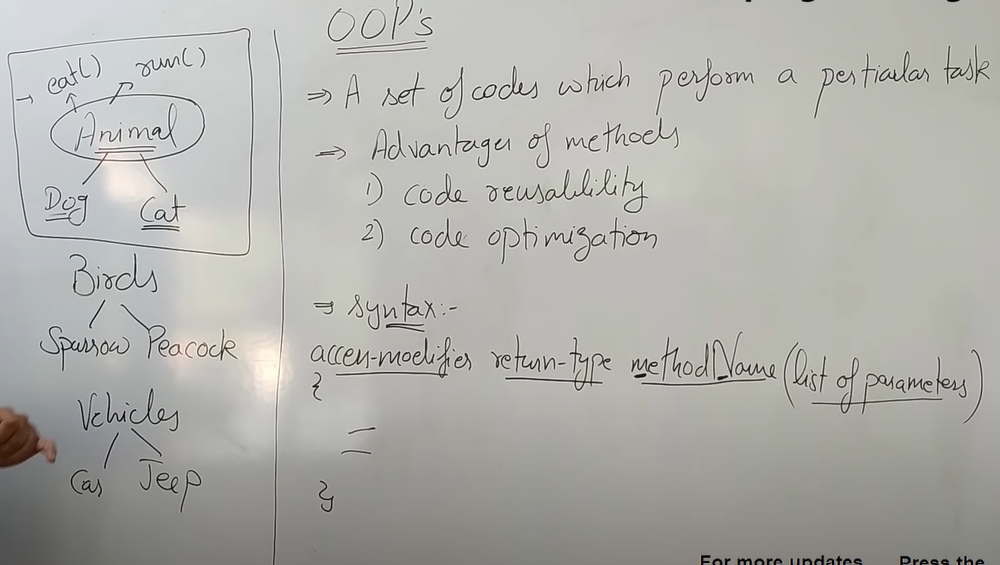 eat() run()
Animal
Dog Cat
Birds
Sparrow Peacock
Vehicles
Car Jeep
OOP's
⇒ A set of codes which perform a perticular task
⇒ Advantages of methods
1) code reusability
2) code optimization
⇒ syntax:-
access-modifier return-type methodName (list of parameters)
{
}
For more updates Press the